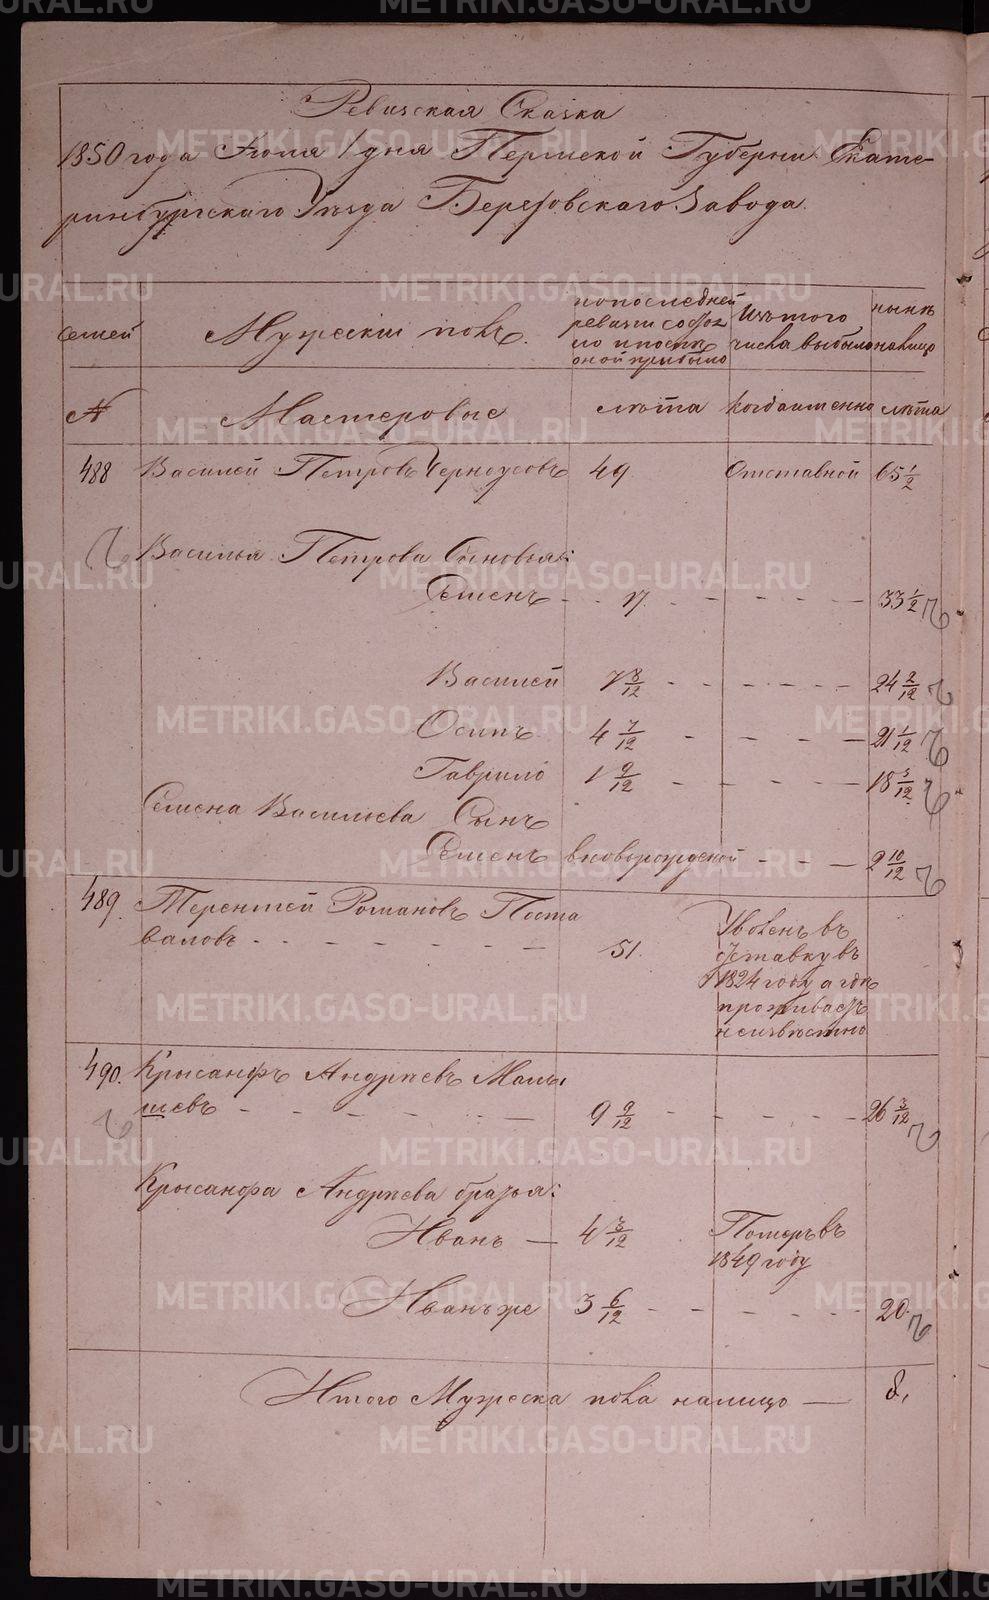 Ревизская Сказка
1850 года Июля 1 дня Пермской Губерни Екате-
ринбургскаго Уезда Березовскаго Завода
семей
Мужеский полъ.
по последней
ревизи состоя
ло и после
оной прибыло
Изъ того
числа выбыло
ныне
налицо
№
Мастеровые
лета
когда именно
лета
488 Василей Петровъ Черноусовъ 49 Отставной 65 1/2
Василья Петрова Сыновья:
Семенъ - - 17. - - - - - 33 1/2
Василей 7 8/12 - - - - - 24 2/12
Осипъ 4 7/12 - - - - 21 1/12
Гаврило 1 9/12 - - - - 18 3/12
Семена Васильева Сынъ
Семенъ вноворожденой - - - 2 10/12
489. Терентей Романовъ Поста
валовъ - - - - - - - 51.
Уволенъ въ
отставку въ
1824 году а где
проживаетъ
неизвестно
490. Крысанфъ Андреевъ Малы
шевъ - - - - - - 9 9/12 - - - - - 26 3/12
Крысанфа Андреева братья:
Иванъ — 4 3/12 Померъ въ
1849 году
Иванъ же 3 6/12 - - - - - 20.
Итого Мужеска пола налицо — 8.
METRIKI.GASO-URAL.RU